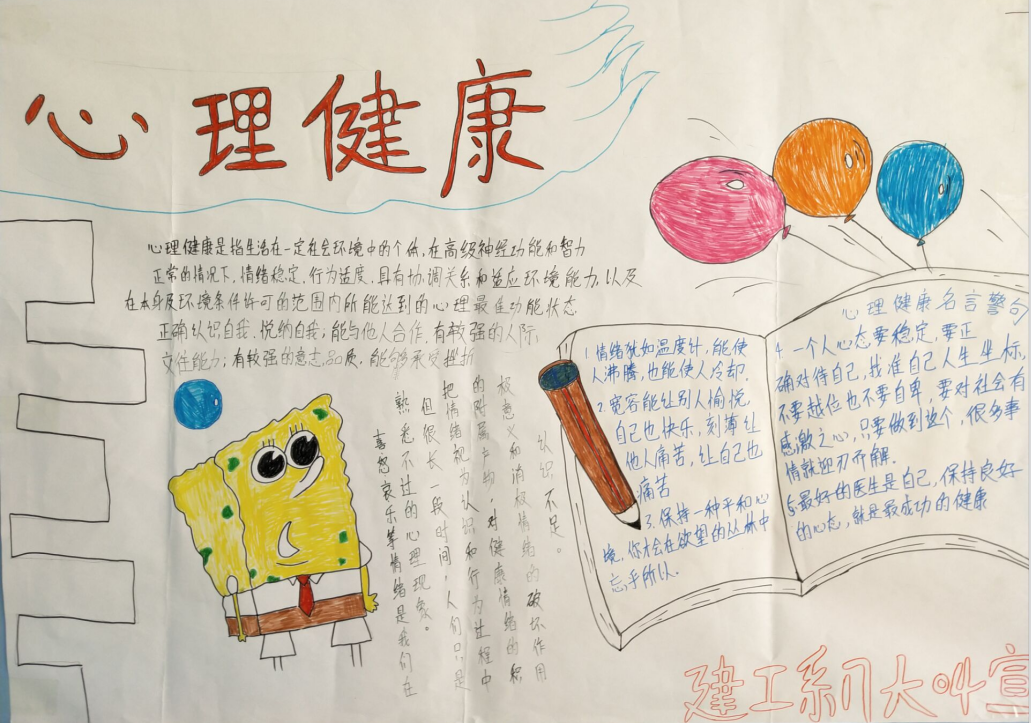 心理健康
心理健康是指生活在一定社会环境中的个体,在高级神经功能和智力
正常的情况下,情绪稳定,行为适度,具有协调关系和适应环境能力,以及
在本身及环境条件许可的范围内所能达到的心理最佳功能状态.
正确认识自我,悦纳自我;能与他人合作,有较强的人际
交往能力;有较强的意志品质,能够承受挫折
喜怒哀乐等情绪是我们在
熟悉不过的心理现象。
但很长一段时间,人们只是
把情绪视为认识和行为过程中
的附属产物,对健康情绪的积
极意义和消极情绪的破坏作用
认识不足。
1.情绪犹如温度计,能使
人沸腾,也能使人冷却.
2.宽容能让别人愉悦,
自己也快乐,刻薄让
他人痛苦,让自己也
痛苦
3.保持一种平和心
境,你才会在欲望的丛林中
忘乎所以.
心理健康名言警句
4.一个人心态要稳定,要正
确对待自己,找准自己人生坐标,
不要越位也不要自卑,要对社会有
感激之心,只要做到这个,很多事
情就迎刃而解.
5.最好的医生是自己,保持良好
的心态,就是最成功的健康
建工系